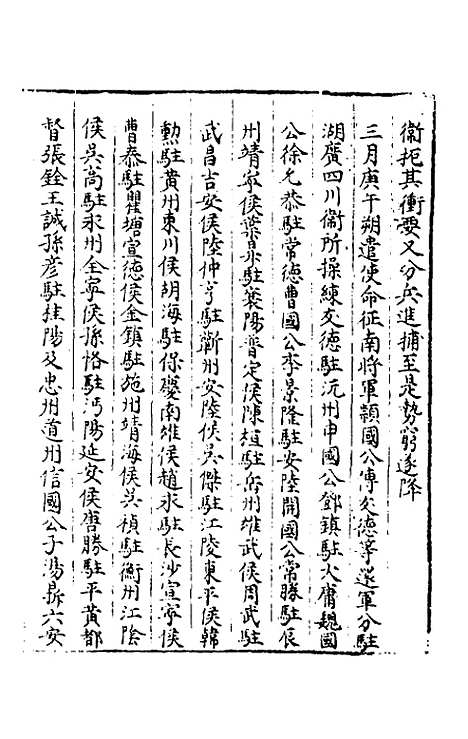 衞扼其衝要又分兵進捕至是勢窮遂降
三月庚午朔遣使命征南將軍頴國公傅友德等還軍分駐
湖廣四川衞所操練友德駐沅州申國公鄧鎮駐大庸魏國
公徐允恭駐常德曹國公李景隆駐安陸開國公常勝駐辰
州靖寧侯葉昇駐襄陽普定侯陳桓駐岳州雄武侯周武駐
武昌吉安侯陸仲亨駐衞州安陸侯吳傑駐江陵東平侯韓
勲駐黃州東川侯胡海駐保慶南雄侯趙永駐長沙宣寧侯
曹泰駐瞿塘宣德侯金鎮駐施州靖海侯吳禎駐衡州江陰
侯吳尚駐永州全寧侯孫恪駐沔陽延安侯唐勝駐平黃都
督張銓王誠孫彥駐桂陽及忠州道州信國公子湯鼎六安